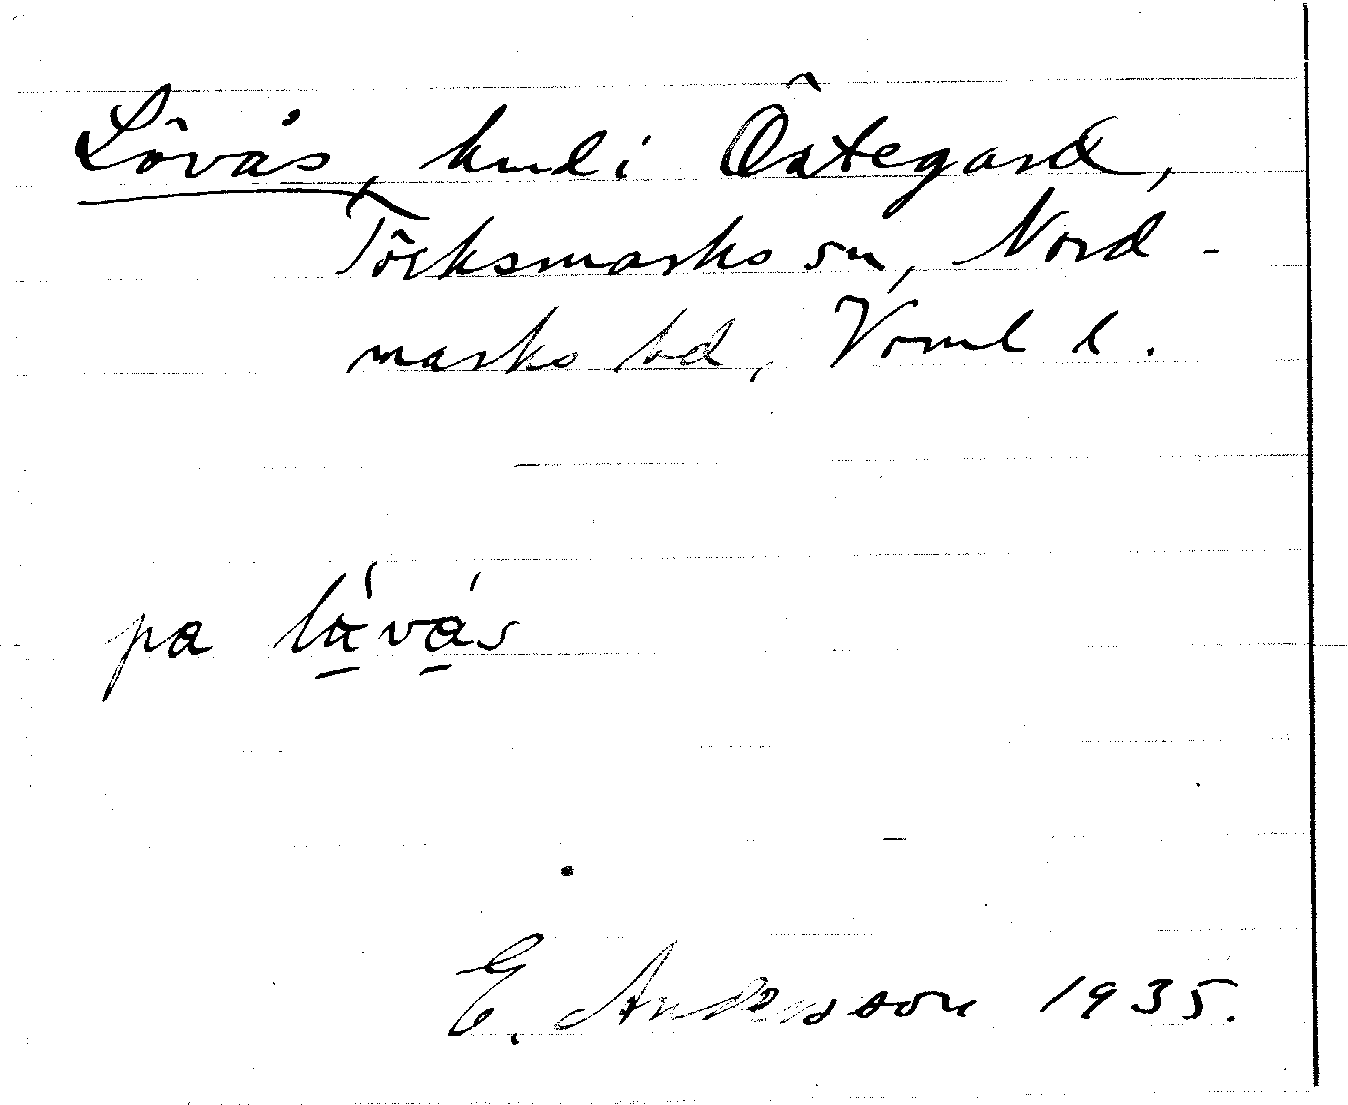 Lövås, hmd i Östegard,
Töcksmarks sn, Nord-
marks hd, Vrml l.
pa lå̱vå̱s
E. Andersson 1935.